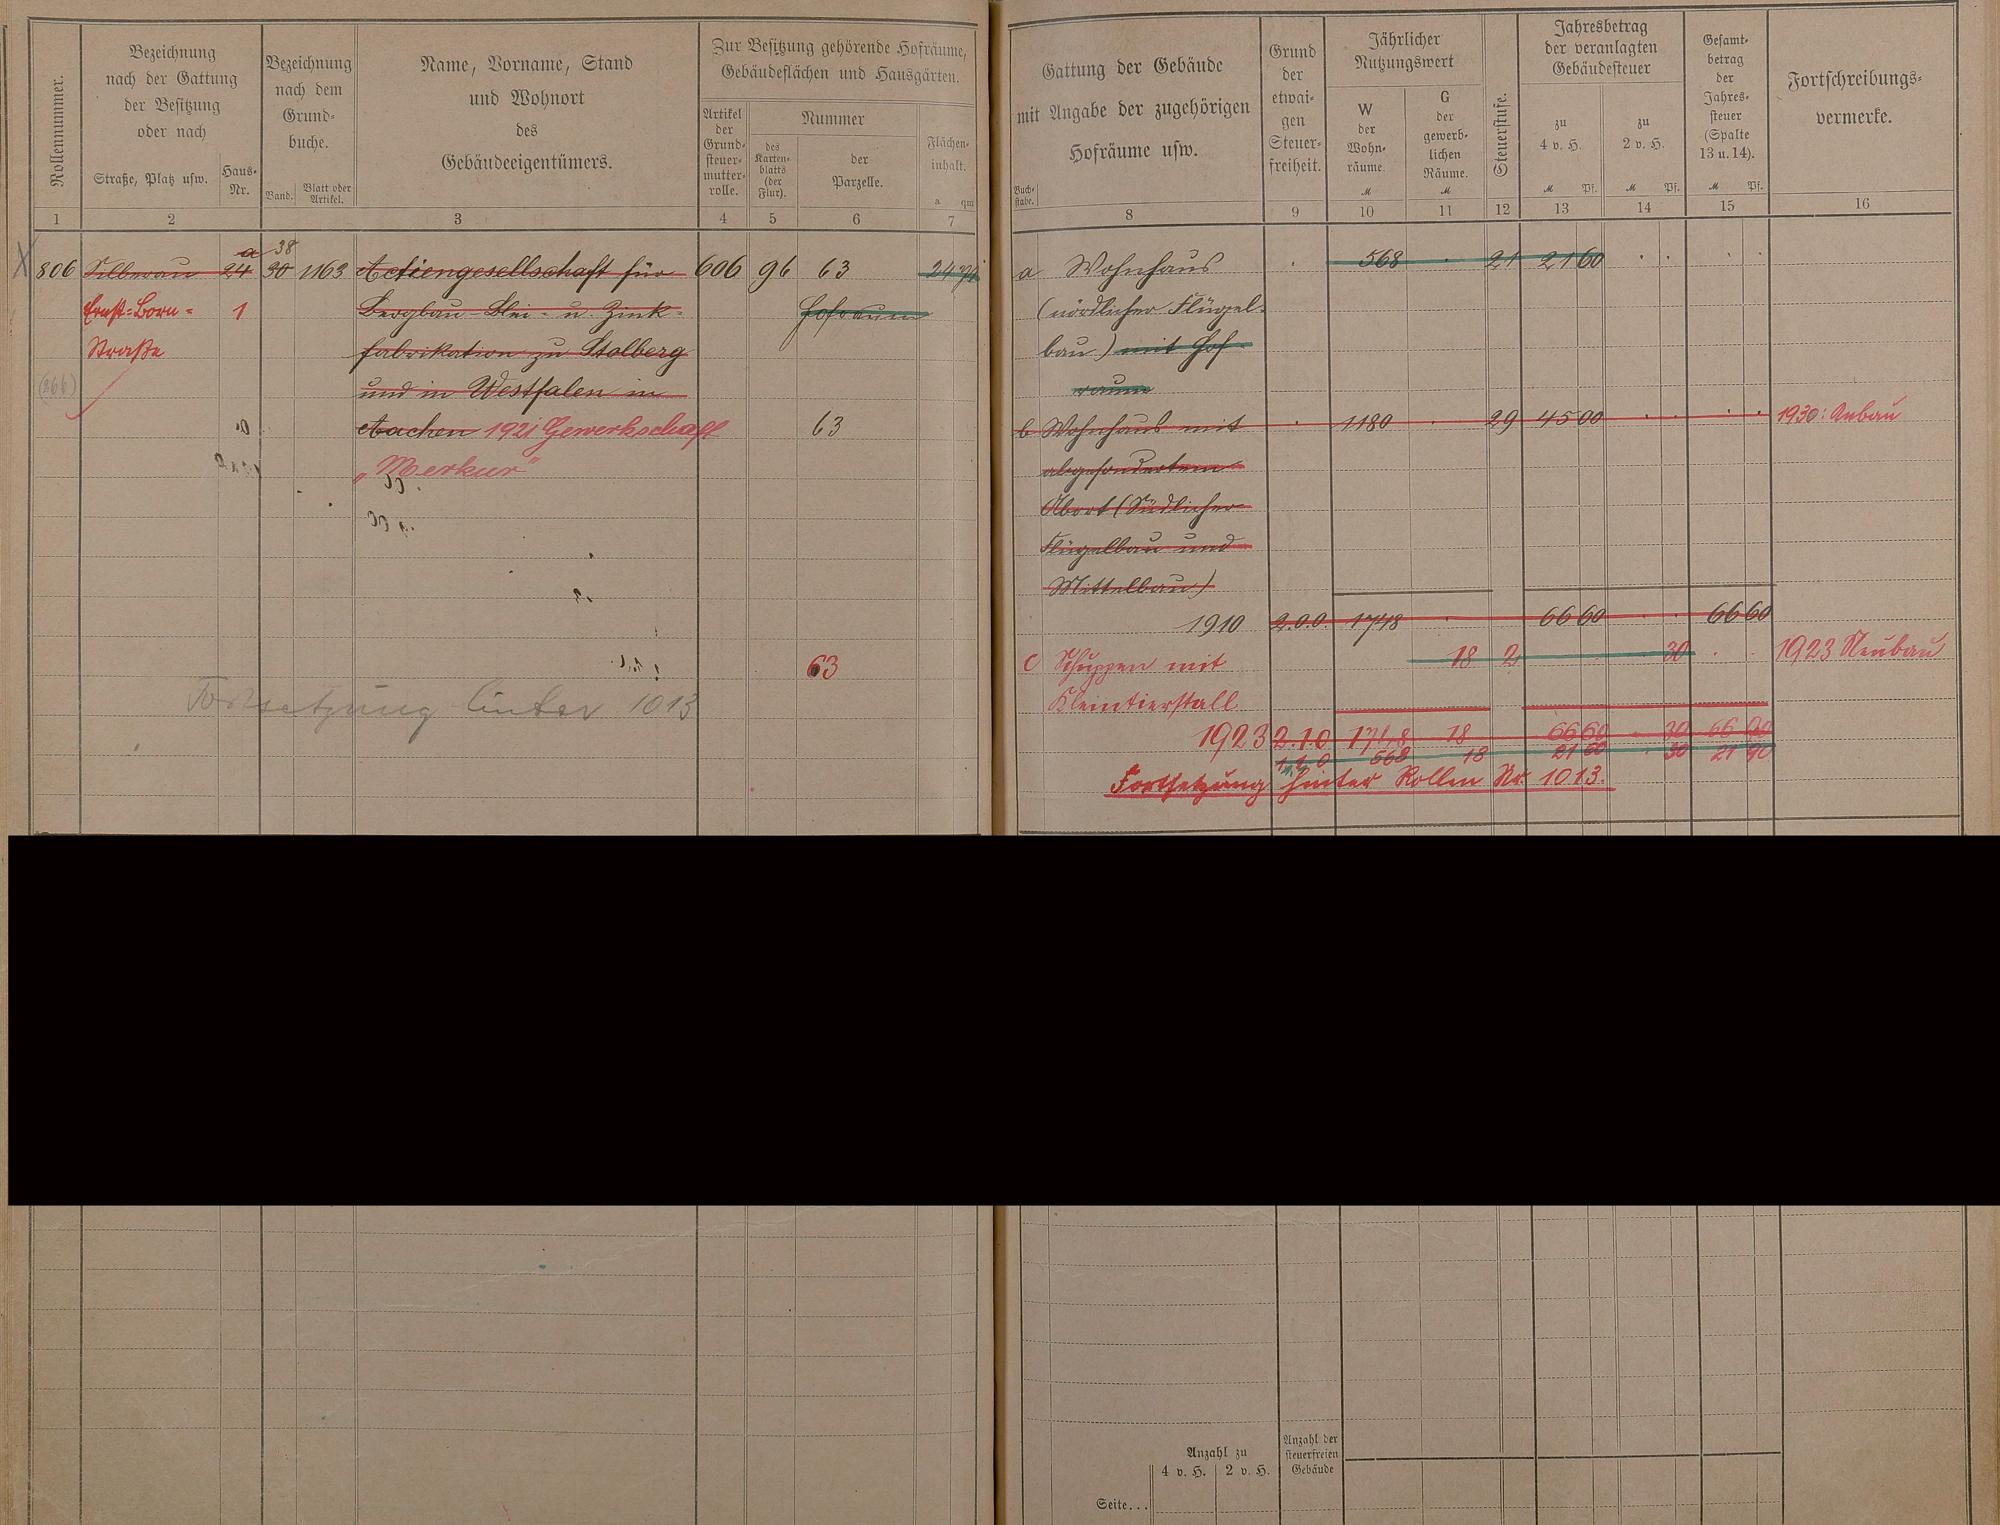 Rollennummer.
Bezeichnung
nach der Gattung
der Besitzung
oder nach
Straße, Platz usw.
Haus-
Nr.
Bezeichnung
nach dem
Grund-
buche.
Band.
Blatt oder
Artikel.
Name, Vorname, Stand
und Wohnort
des
Gebäudeeigentümers.
Zur Besitzung gehörende Hofräume,
Gebäudeflächen und Hausgärten.
Artikel
der
Grund-
steuer-
mutter-
rolle.
Nummer
des
Karten-
blatts
(der
Flur).
der
Parzelle.
Flächen-
inhalt.
a qm
1 2 3 4 5 6 7
a 38
806 Silberau 24 30 1163 Actiengesellschaft für 606 96 63 24
Ernst-Born- 1 Bergbau Blei- u. Zink- Hofraum
Straße fabrikation zu Stolberg
(266) und in Westfalen in
Aachen 1921 Gewerkschaft 63
„Merkur"
63
Fortsetzung hinter 1013
Gattung der Gebäude
mit Angabe der zugehörigen
Hofräume usw.
Buch-
stabe.
Grund
der
etwai-
gen
Steuer-
freiheit.
Jährlicher
Nutzungswert
W
der
Wohn-
räume.
M
G
der
gewerb-
lichen
Räume.
M
Steuerstufe.
Jahresbetrag
der veranlagten
Gebäudesteuer
zu
4 v. H.
M Pf.
zu
2 v. H.
M Pf.
Gesamt-
betrag
der
Jahres-
steuer
(Spalte
13 u. 14).
M Pf.
Fortschreibungs-
vermerke.
8 9 10 11 12 13 14 15 16
a Wohnhaus 568 21 21 60
(nördlicher Flügel-
bau) mit Hof-
raum
b Wohnhaus mit 1180 29 45 00 1930: Anbau
abgesondertem
Abort (Südlicher
Flügelbau und
Mittelbau)
1910 2.0.0. 1748 66 60 66 60
c Schuppen mit 18 2 30 1923 Neubau
Kleintierstall
1923 2.1.0 1748 18 66 60 30 66 90
1.1.0 568 18 21 60 30 21 90
Fortsetzung hinter Rollen Nr. 1013.
Anzahl zu
4 v. H. 2 v. H.
Anzahl der
steuerfreien
Gebäude
Seite...